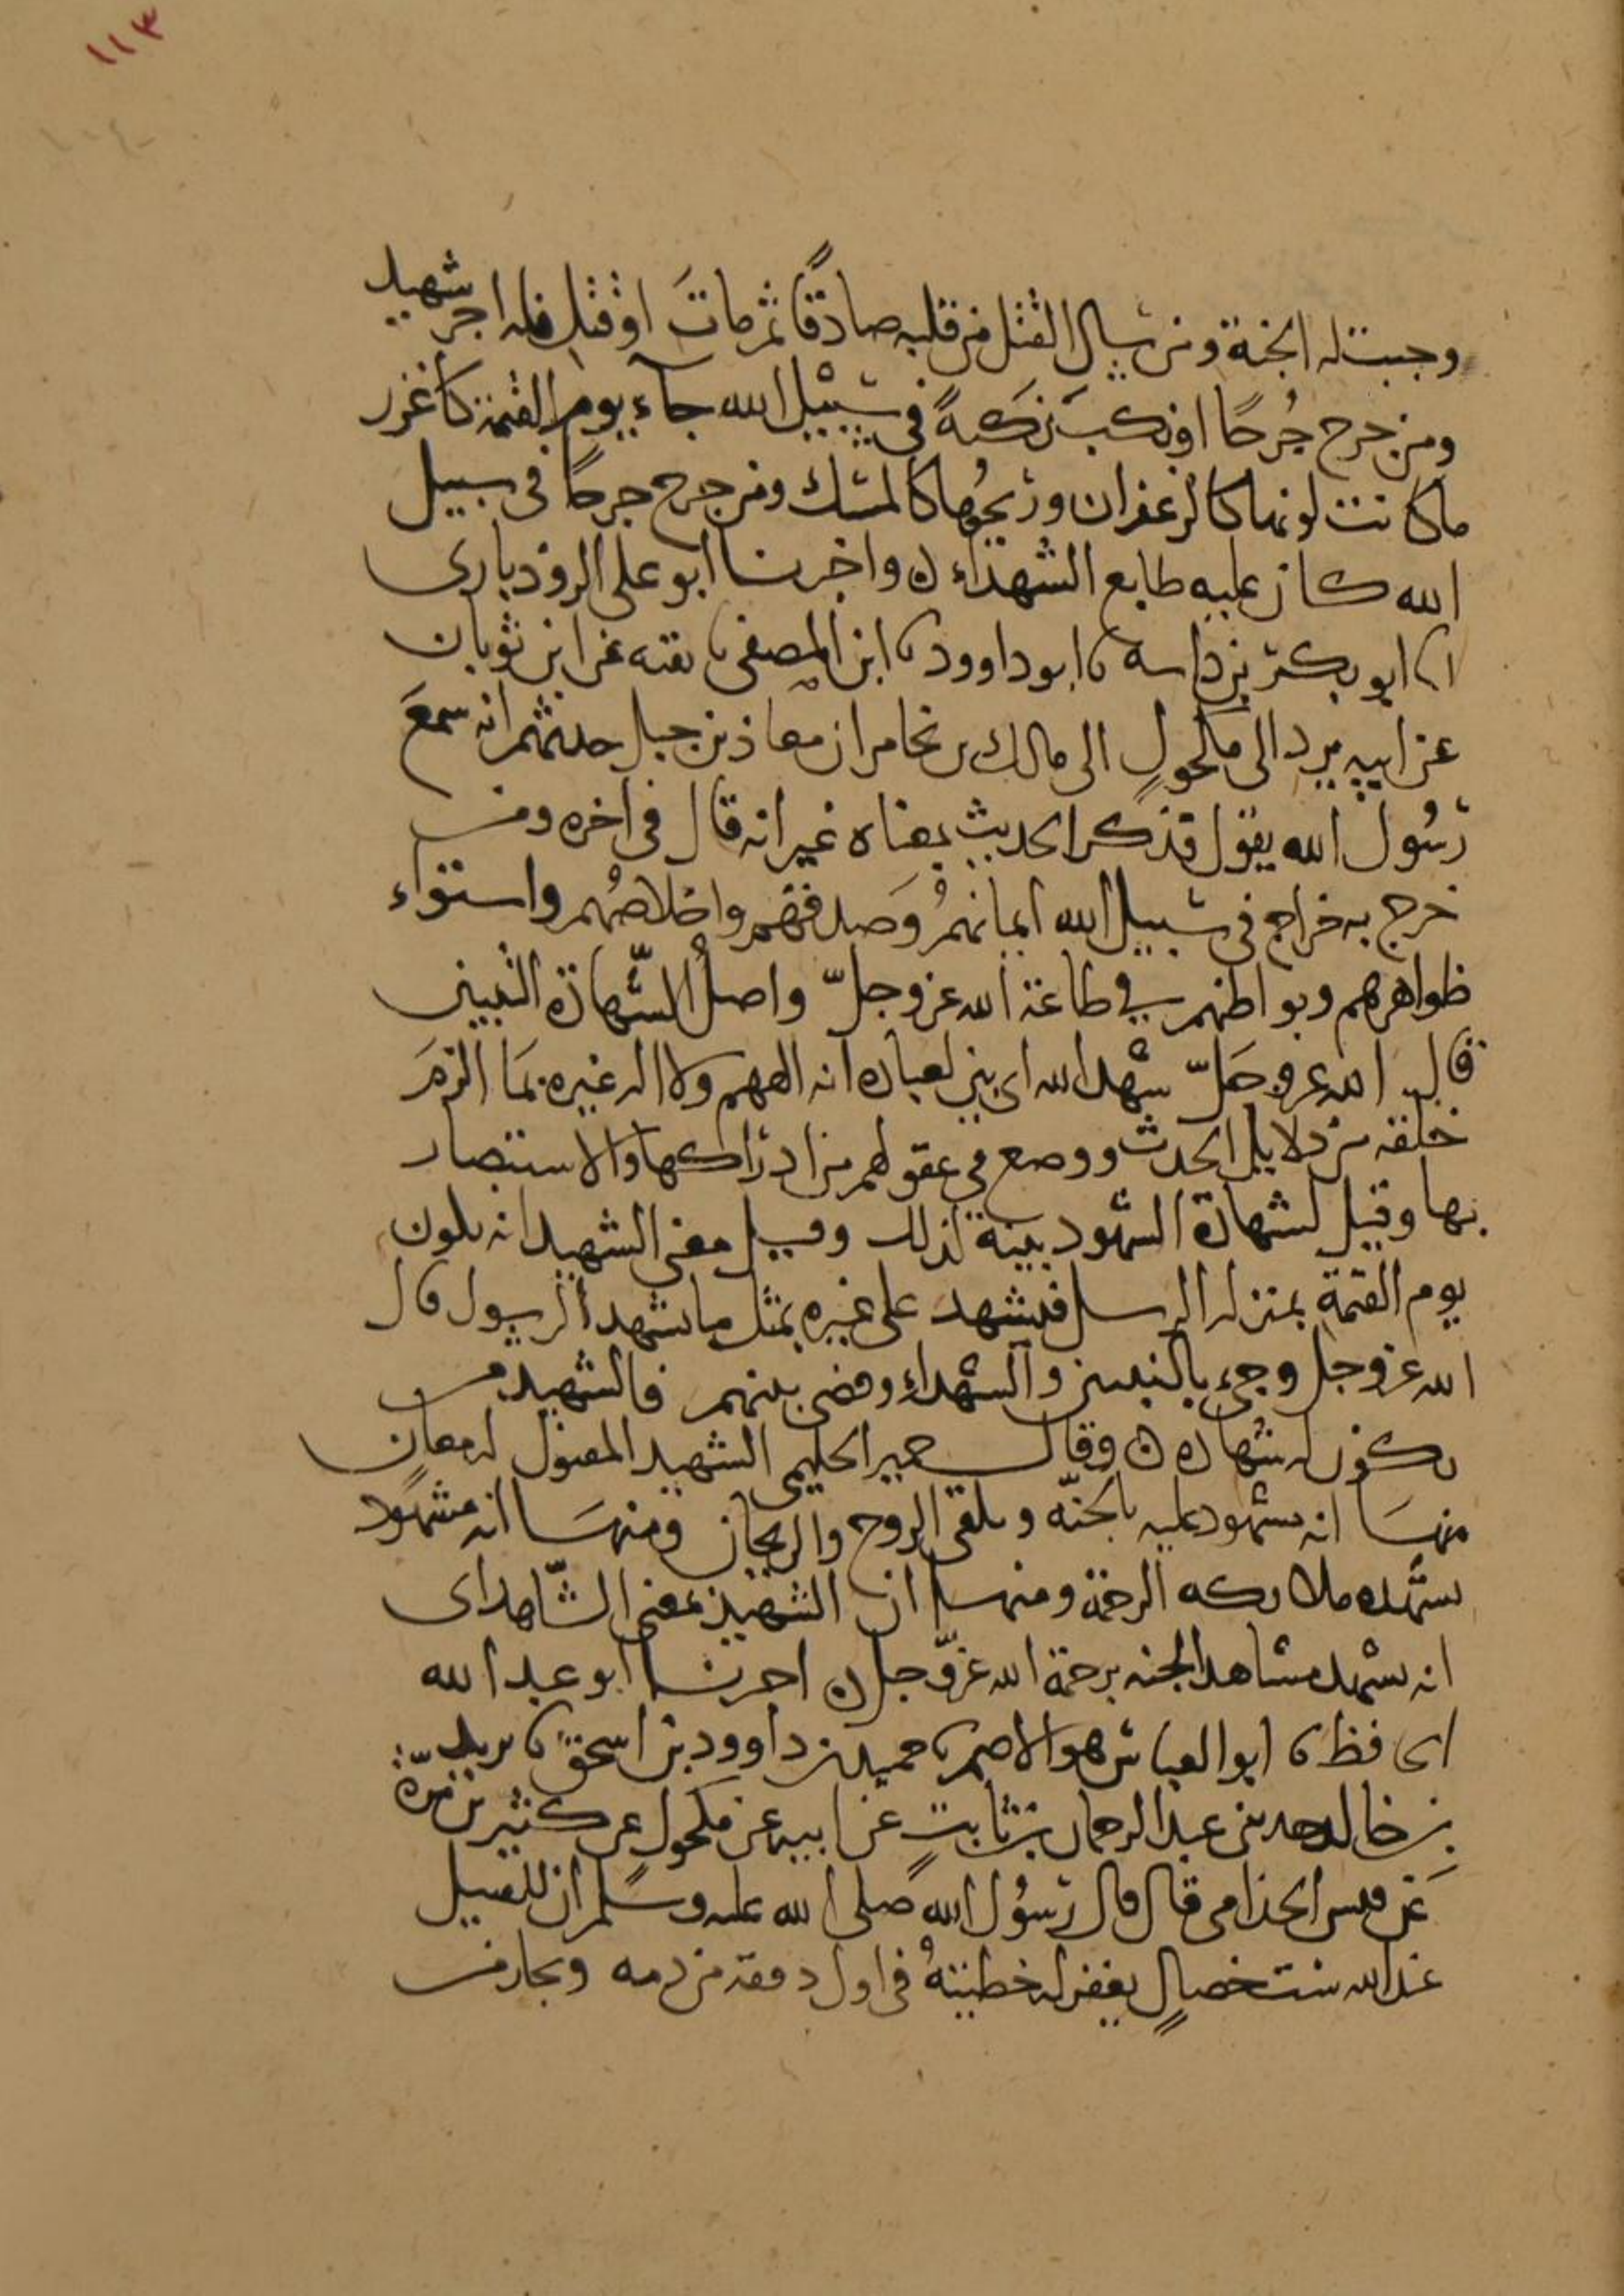 ١١٣
وجبت له الجنة ومن سال القتل من قلبه صادقًا ثم ماتَ او قتل فله اجر شهيد
ومن جرح جُرحًا او نكبَ نكبةً في سبيل الله جآء يوم القيمة كأغزر
ما كانت لونها كالزعفران وريحُها كالمسك ومن جرح جرحًا في سبيل
الله كان عليه طابع الشهداء ن واخبرنا ابو على الروذبارى
انا ابو بكر بن داسه نا ابو داوود نا ابن المصفى نا بقيه عن ابن ثوبان
عن ابيه يرد الى مكحولٍ الى مالك بن يخامر ان معاذ بن جبل حدثهم انه سمعَ
رسُول الله يقول فذكر الحديث بمعناه غير انه قال في اخره ومن
خرج به خراج في سبيل الله ايمانهمُ وَصدقهم واخلاصُهم واستواء
ظواهرهم وبواطنهم في طاعة الله عز وجلّ واصلُ الشّهادة التبيين
قال الله عز وجَلّ شهد الله اى بين لعباده انه الههم ولا اله غيره بمَا الزمَ
خلقه من دلايل الحدث ووضع في عقولهم من ادراكها والاستبصار
بها وقيل لشهادة الشهود بينة لذلك وقيل معنى الشهيد انه يكون
يوم القيمة بمنزله الرسل فيشهد على غيره بمثل ما يشهد الرسول قال
الله عز وجل وجىء بالنبيين والشهداء وقضى بينهم فالشهيد من
يكون له شهاده ن وقال الحليمى الشهيد المقتول له معانٍ
منهسَا انه مشهود عليه بالجنّه ويلقى الروح والريحان ومنهسَا انه مشهود
يشهده ملائكه الرحمة ومنها ان الشهيد بمعنى الشّاهد اى
انه يشهد مشاهد الجنه برحمة الله عزّ وجل ن اخبرنا ابو عبد الله
الحافظ نا ابو العباس هو الاصم نا حميد بن داوود بن اسحق نا يزيد
بن خالد حدثنى عبد الرحمان بن ثابتٍ عن ابيه عن مكحول عن كثير بن مرّة
عن قيس الجذامى قال قال رسُول الله صلى الله عليه وسلم ان للقتيل
عند الله ست خصالٍ يغفر له خطيئتهُ في اول دفقة من دمه ويجار من